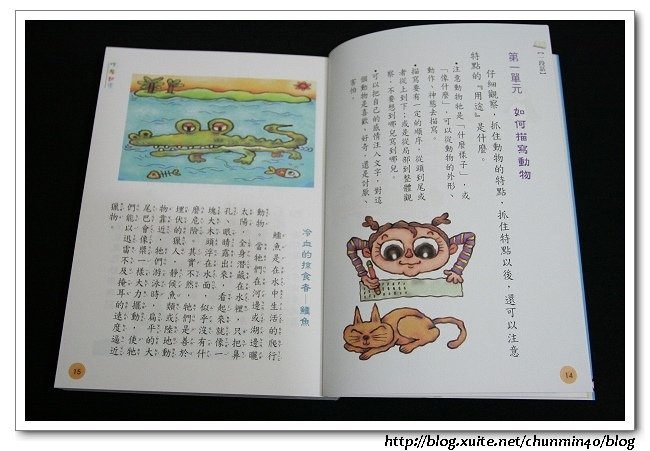 【一段話】
第一單元　如何描寫動物
仔細觀察，抓住動物的特點，抓住特點以後，還可以注意
特點的『用途』是什麼。
•注意動物牠是「什麼樣子」，或
「像什麼」，可以從動物的外形、
動作、神態去描寫。
•描寫要有一定的順序，從頭到尾或
者從上到下；或是從局部到整體觀
察，不要想到哪兒寫到哪兒。
•可以把自己的感情注入文字，對這
個動物是喜歡、好奇，還是討厭、
害怕。
14
冷血的掠食者—鱷魚
鱷魚是在水中生活的爬行
動物。當牠們在河邊或湖邊曬
太陽，全身潛藏在水裡，只把鼻
孔、眼睛露出來，看起來就像一
塊大木頭浮在水面，似乎沒有什
麼危險。其實不然，牠們是善於
埋伏的獵人，靜候魚類或陸地動
物靠近，牠們游泳時，扁平的大
尾巴會像槳一樣大力擺動，使牠
們能以迅雷不及掩耳的速度逼近
獵物。
15
http://blog.xuite.net/chunmin40/blog